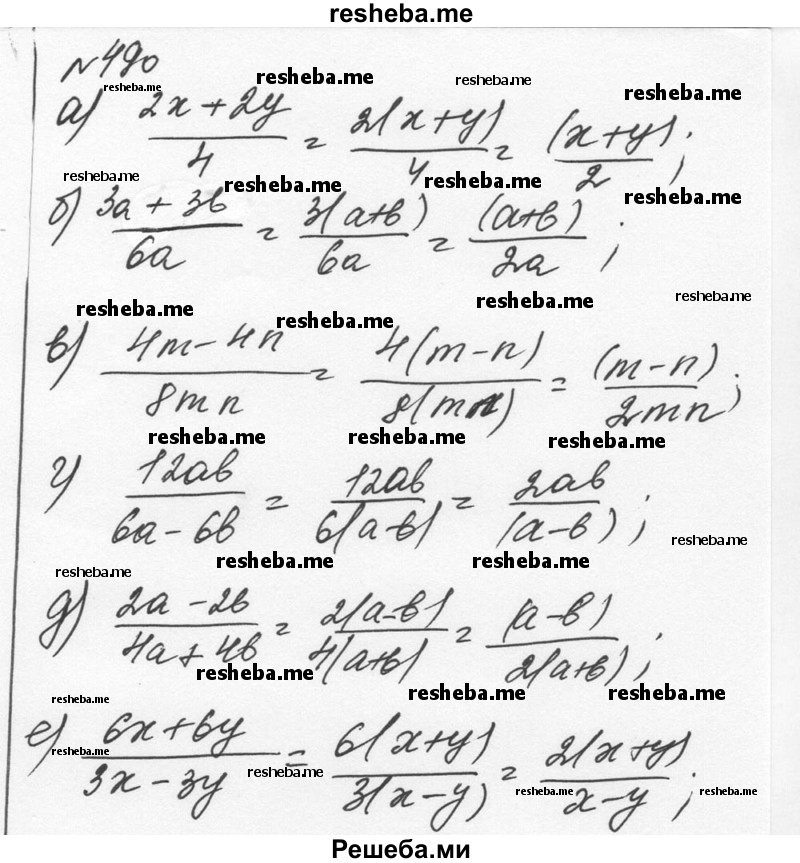 resheba.me
№490
resheba.me resheba.me resheba.me resheba.me
а) 2x + 2y / 4 = 2(x + y) / 4 = (x + y) / 2 ;
resheba.me resheba.me resheba.me resheba.me
б) 3a + 3b / 6a = 3(a+b) / 6a = (a+b) / 2a ;
resheba.me resheba.me resheba.me resheba.me
в) 4m - 4n / 8mn = 4(m - n) / 8(mn) = (m - n) / 2mn ;
resheba.me resheba.me resheba.me
г) 12ab / 6a - 6b = 12ab / 6(a - b) = 2ab / (a - b) ;
resheba.me resheba.me resheba.me resheba.me
д) 2a - 2b / 4a + 4b = 2(a - b) / 4(a+b) = (a - b) / 2(a+b) ;
resheba.me resheba.me resheba.me resheba.me
е) 6x + 6y / 3x - 3y = 6(x+y) / 3(x - y) = 2(x + y) / x - y ;
resheba.me resheba.me resheba.me resheba.me
Решеба.ми